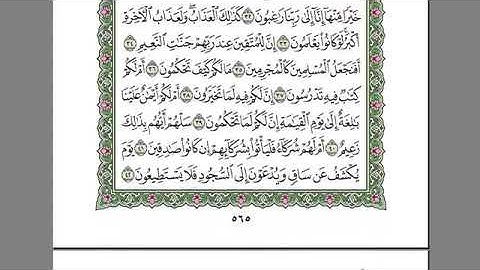 خَيْرًا مِّنْهَا إِنَّا إِلَىٰ رَبِّنَا رَٰغِبُونَ ٣٢ كَذَٰلِكَ ٱلْعَذَابُ ۖ وَلَعَذَابُ ٱلْـَٔاخِرَةِ
أَكْبَرُ ۚ لَوْ كَانُوا۟ يَعْلَمُونَ ٣٣ إِنَّ لِلْمُتَّقِينَ عِندَ رَبِّهِمْ جَنَّـٰتِ ٱلنَّعِيمِ ٣٤
أَفَنَجْعَلُ ٱلْمُسْلِمِينَ كَٱلْمُجْرِمِينَ ٣٥ مَا لَكُمْ كَيْفَ تَحْكُمُونَ ٣٦ أَمْ لَكُمْ
كِتَـٰبٌ فِيهِ تَدْرُسُونَ ٣٧ إِنَّ لَكُمْ فِيهِ لَمَا تَخَيَّرُونَ ٣٨ أَمْ لَكُمْ أَيْمَـٰنٌ عَلَيْنَا
بَـٰلِغَةٌ إِلَىٰ يَوْمِ ٱلْقِيَـٰمَةِ ۙ إِنَّ لَكُمْ لَمَا تَحْكُمُونَ ٣٩ سَلْهُمْ أَيُّهُم بِذَٰلِكَ
زَعِيمٌ ٤٠ أَمْ لَهُمْ شُرَكَآءُ فَلْيَأْتُوا۟ بِشُرَكَآئِهِمْ إِن كَانُوا۟ صَـٰدِقِينَ ٤١ يَوْمَ
يُكْشَفُ عَن سَاقٍ وَيُدْعَوْنَ إِلَى ٱلسُّجُودِ فَلَا يَسْتَطِيعُونَ ٤٢
٥٦٥